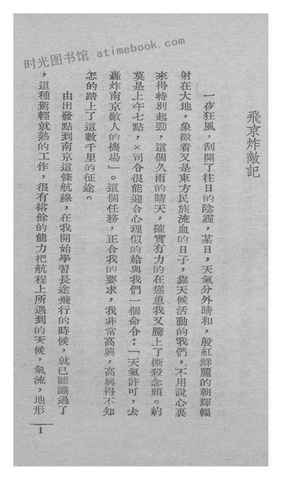 时光图书馆 atimebook.com
飛京炸敵記
一夜狂風，刮開了往日的陰霾，某日，天氣分外晴和，殷紅鮮麗的朝輝輻
射在大地，象徵着又是東方民族流血的日子，靠天候活動的我們，不用說心裏
來得特別起勁，這個久雨的晴天，確實有力的在慫恿我又騰上了衝殺念頭。約
莫是上午七點，×司令很能迎合心理似的給與我們一個命令：「天氣許可，去
轟炸南京敵人的機場」。這個任務，正合我的要求，我非常高興，高興得不知
怎的踏上了這數千里的征途。
由出發點到南京這條航線，在我開始學習長途飛行的時候，就已認識過了
，這種駕輕就熟的工作，很有餘裕的能力把航程上所遇到的天候，氣流，地形
1